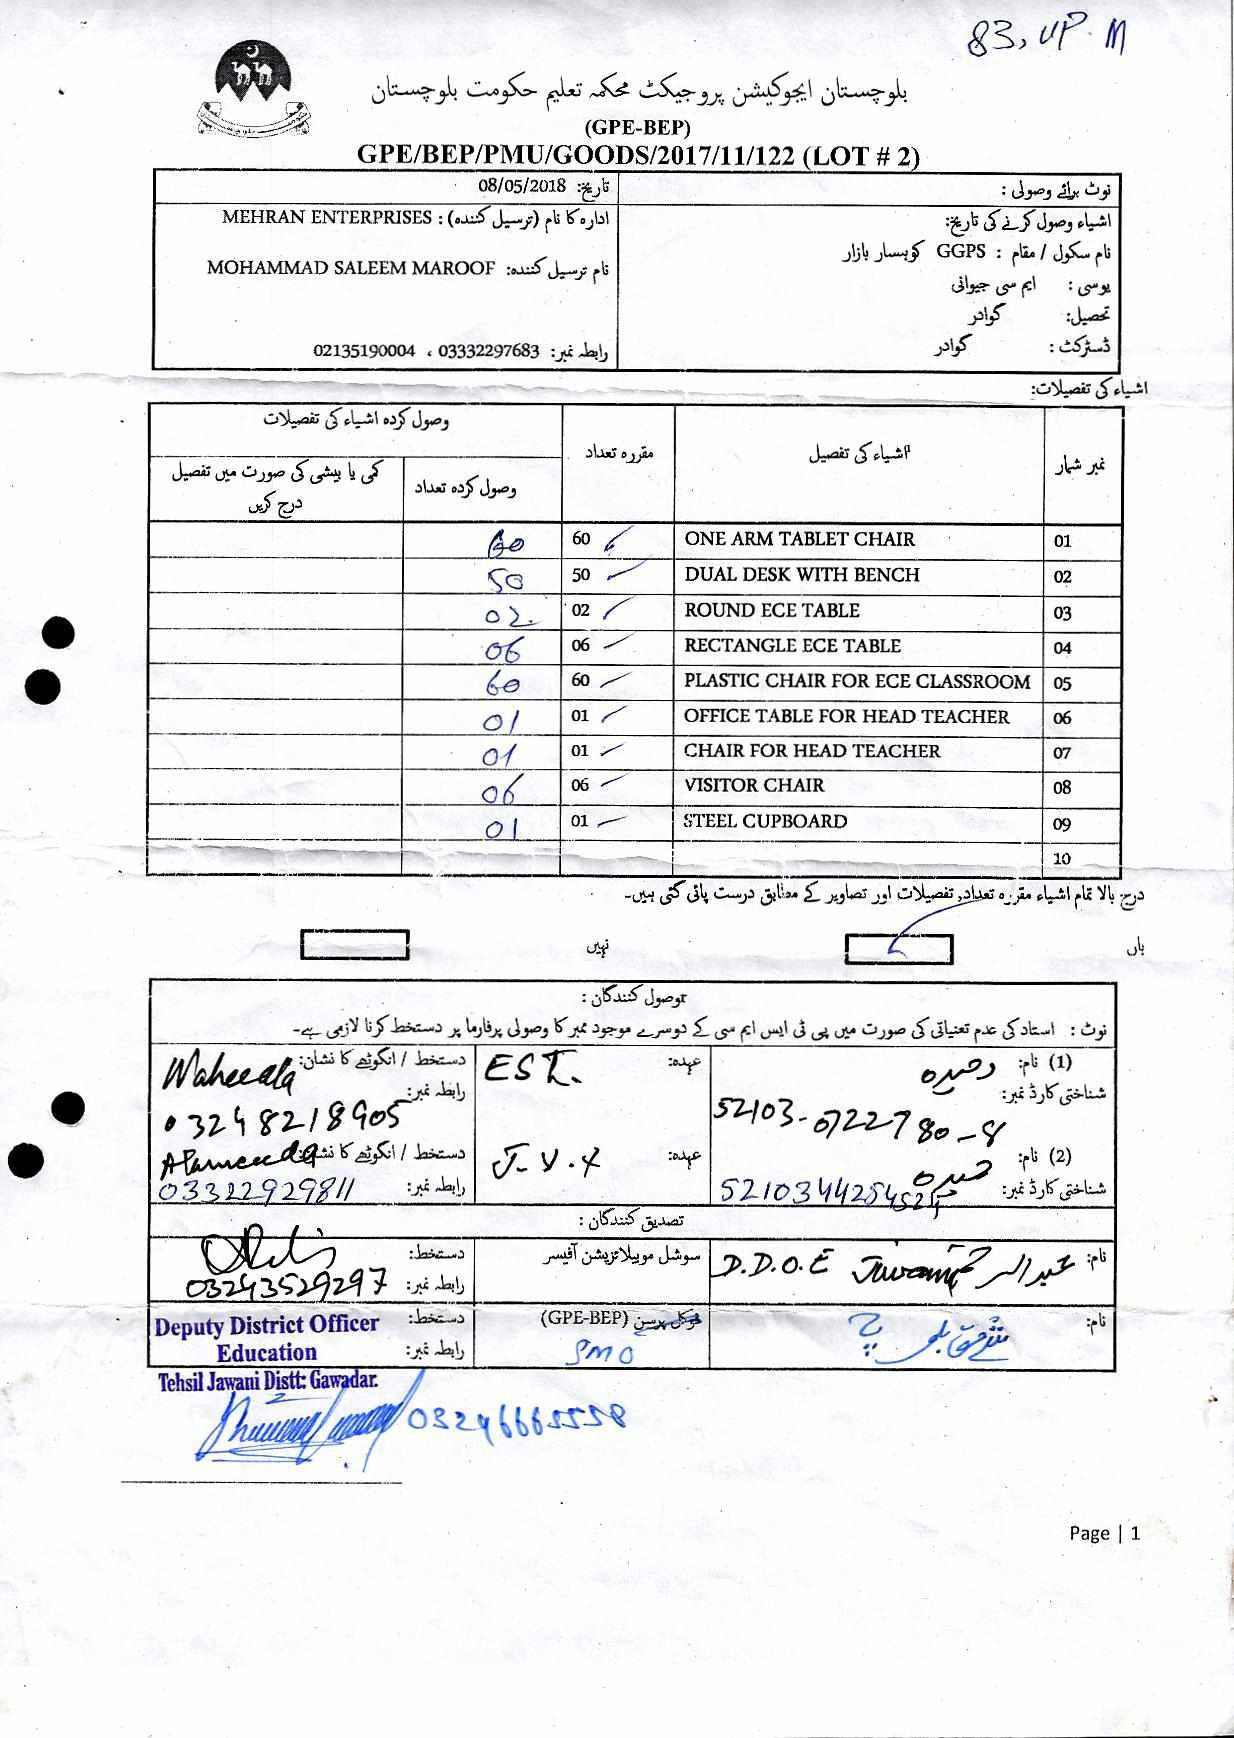 83, UP. M
بلوچستان ایجوکیشن پروجیکٹ محکمہ تعلیم حکومت بلوچستان
(GPE-BEP)
GPE/BEP/PMU/GOODS/2017/11/122 (LOT # 2)
نوٹ برائے وصولی :
تاریخ: 08/05/2018
اشیاء وصول کرنے کی تاریخ:
ادارہ کا نام (ترسیل کنندہ) : MEHRAN ENTERPRISES
نام سکول / مقام : GGPS کوہسار بازار
نام ترسیل کنندہ: MOHAMMAD SALEEM MAROOF
یوسی : ایم سی جیوانی
تحصیل: گوادر
ڈسٹرکٹ : گوادر
رابطہ نمبر: 03332297683 ، 02135190004
اشیاء کی تفصیلات:
نمبر شمار اشیاء کی تفصیل مقررہ تعداد وصول کردہ اشیاء کی تفصیلات
وصول کردہ تعداد کمی یا بیشی کی صورت میں تفصیل درج کریں
01 ONE ARM TABLET CHAIR 60 60
02 DUAL DESK WITH BENCH 50 50
03 ROUND ECE TABLE 02 02
04 RECTANGLE ECE TABLE 06 06
05 PLASTIC CHAIR FOR ECE CLASSROOM 60 60
06 OFFICE TABLE FOR HEAD TEACHER 01 01
07 CHAIR FOR HEAD TEACHER 01 01
08 VISITOR CHAIR 06 06
09 STEEL CUPBOARD 01 01
10
درج بالا تمام اشیاء مقررہ تعداد, تفصیلات اور تصاویر کے مطابق درست پائی گئی ہیں۔
ہاں نہیں
توصول کنندگان :
نوٹ : استاد کی عدم تعیناتی کی صورت میں پی ٹی ایس ایم سی کے دوسرے موجود ممبر کا وصولی پرفارما پر دستخط کرنا لازمی ہے۔
(1) نام: وحیدہ عہدہ: EST. دستخط / انگوٹھے کا نشان: Waheeda
شناختی کارڈ نمبر: 52103-0722780-8 رابطہ نمبر: 03248218905
(2) نام: عہدہ: J.V.T دستخط / انگوٹھے کا نشان:
شناختی کارڈ نمبر: رابطہ نمبر: 03322929811
تصدیق کنندگان :
نام: D.D.O.E Jiwani سوشل موبیلائزیشن آفیسر دستخط:
رابطہ نمبر: 03243529297
نام: فوکل پرسن (GPE-BEP) دستخط:
SMO رابطہ نمبر:
Deputy District Officer
Education
Tehsil Jawani Distt: Gawadar.
03246665558
Page | 1